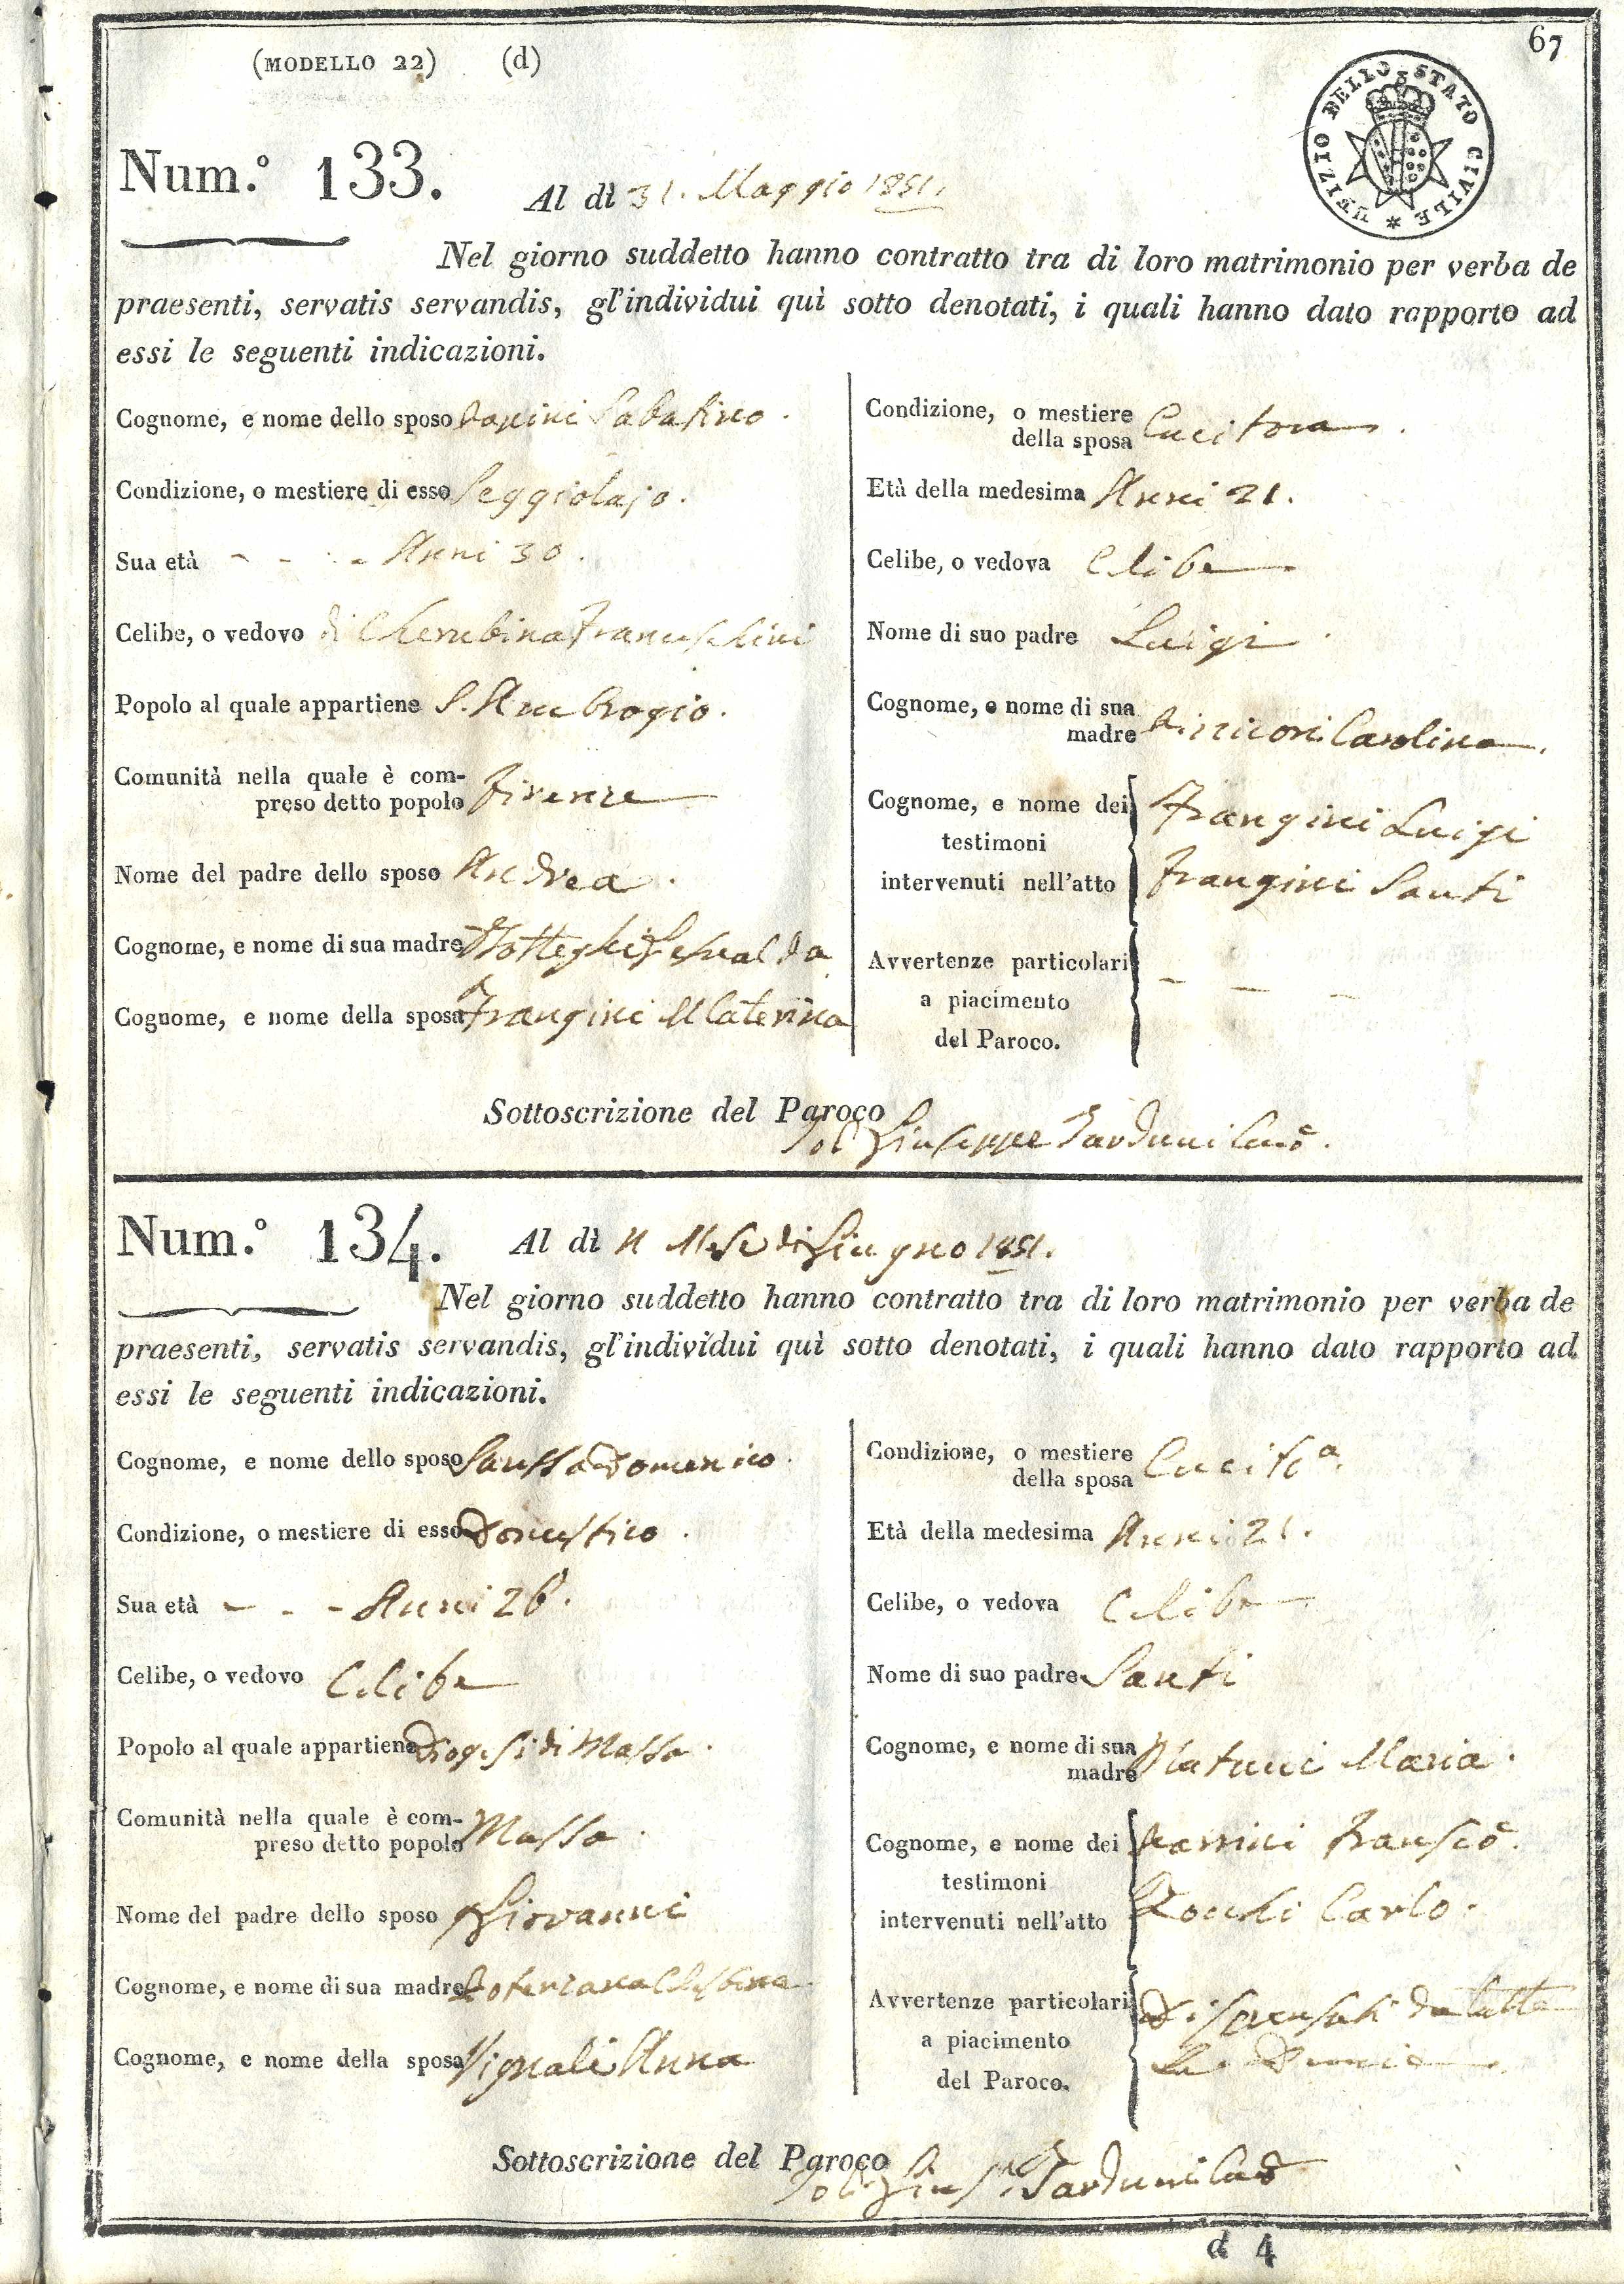 67
(MODELLO 22) (d)
UFIZIO DELLO STATO CIVILE
Num.° 133.
Al dì 31. Maggio 1851.
Nel giorno suddetto hanno contratto tra di loro matrimonio per verba de
praesenti, servatis servandis, gl'individui quì sotto denotati, i quali hanno dato rapporto ad
essi le seguenti indicazioni.
Cognome, e nome dello sposo Sabatino.
Condizione, o mestiere di esso Seggiolajo.
Sua età - - - - Anni 30.
Celibe, o vedovo di Cherubina Franceschini
Popolo al quale appartiene S. Ambrogio.
Comunità nella quale è com-
preso detto popolo Firenze
Nome del padre dello sposo Andrea.
Cognome, e nome di sua madre
Cognome, e nome della sposa Frangini
Condizione, o mestiere
della sposa Cucitora.
Età della medesima Anni 21.
Celibe, o vedova Celibe
Nome di suo padre Luigi
Cognome, e nome di sua
madre Carolina.
Cognome, e nome dei
testimoni
intervenuti nell'atto
Frangini Luigi
Frangini Santi
Avvertenze particolari
a piacimento
del Paroco.
- - -
Sottoscrizione del Paroco
Giuseppe Tarduni
Num.° 134.
Al dì Mese di Giugno 1851.
Nel giorno suddetto hanno contratto tra di loro matrimonio per verba de
praesenti, servatis servandis, gl'individui quì sotto denotati, i quali hanno dato rapporto ad
essi le seguenti indicazioni.
Cognome, e nome dello sposo Domenico.
Condizione, o mestiere di esso Domestico.
Sua età - - - Anni 26.
Celibe, o vedovo Celibe
Popolo al quale appartiene Diogesi di Massa.
Comunità nella quale è com-
preso detto popolo Massa.
Nome del padre dello sposo Giovanni
Cognome, e nome di sua madre
Cognome, e nome della sposa Vignali Anna
Condizione, o mestiere
della sposa Cucit.ª
Età della medesima Anni 21.
Celibe, o vedova Celibe
Nome di suo padre Santi
Cognome, e nome di sua
madre Maria.
Cognome, e nome dei
testimoni
intervenuti nell'atto
Carlo.
Avvertenze particolari
a piacimento
del Paroco.
Dispensati da tutte
Sottoscrizione del Paroco
Tarduni
d 4